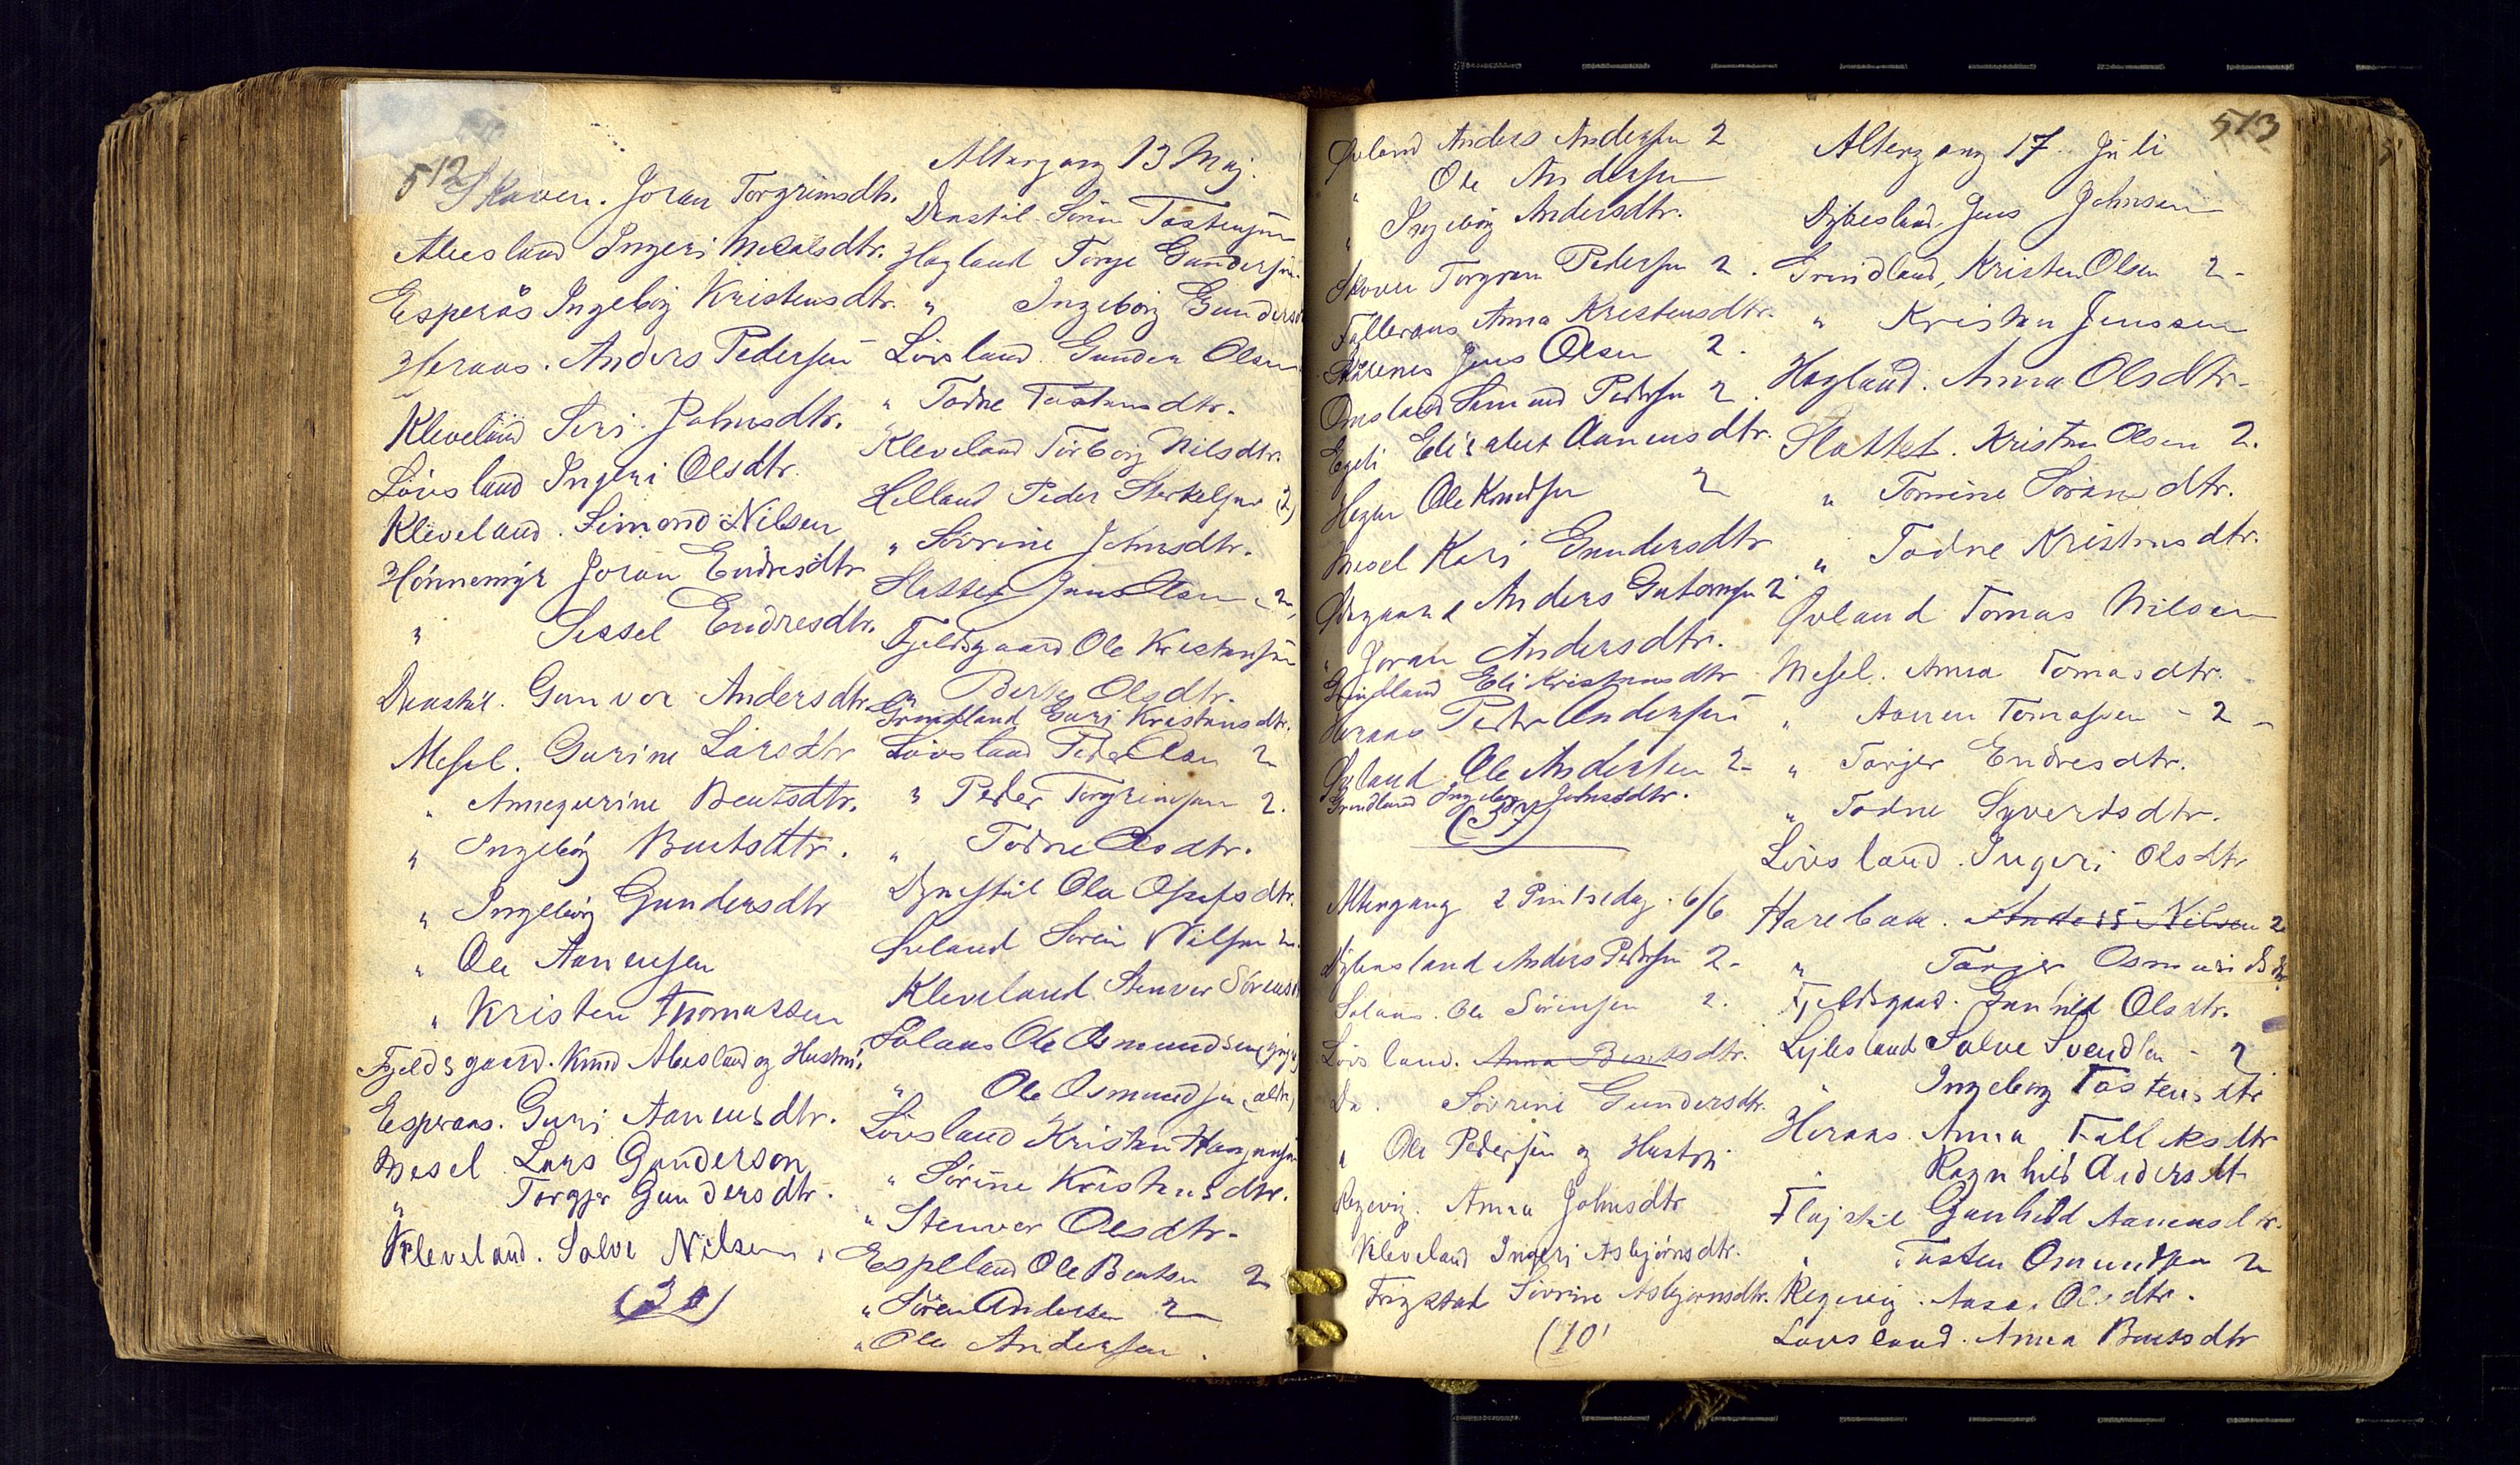 512
Skoven. Joran Torgrimsdtr.
Abesland Ingeri Nielsdtr.
Esperås Ingeborg Kristensdtr.
Heraas. Anders Pedersen
Kleveland Siri Johnsdtr.
Lövsland Ingeri Olsdtr.
Kleveland. Simond Nilsen
Hönnemyr Joran Endresdtr
" Sissel Endresdtr.
Dunstil. Gunvor Andersdtr
Mesel. Gurine Larsdtr
" Annegurine Bentsdtr.
" Ingeborg Bentsdtr.
" Ingeborg Gundersdtr
" Ole Aanensen
" Kristen Thomassen
Fjeldsgaard. Knud Abesland og Hustru.
Esperaas. Guri Aanensdtr.
Mesel Lars Gunderson
" Torgjer Gundersdtr.
Kleveland. Salve Nilsen
Altergang 13 Maj.
Dunstil Sören Tostensen
Hagland Torge Gundersen
" Ingeborg Gundersd
Lövsland. Gunder Olsen
" Todne Tostensdtr.
Kleveland Torborg Nilsdtr.
Helland Peder Sterkelsen (2)
" Sörine Johnsdtr.
Slottet Jens Olsen 2
Fjeldsgaard Ole Kristensen
" Berte Olsdtr.
Grindland Guri Kristensdtr.
Lövsland Peder Olsen 2
" Peder Torgrimsen 2.
" Todne Olsdtr.
Dynestil Ola Osufsdtr.
Øvland Sören Nilsen 2.
Kleveland Stenver Sörens
Solaas Ole Osmundsen (yngr)
" Ole Osmundsen (ældr)
Lövsland Kristen
" Sörine Kristensdtr.
" Stenver Olsdtr.
Espeland Ole Bentsen 2
" Sören Andersen 2
" Ole Andersen.
513
Øvland Anders Andersen 2
" Ole Andersen
" Ingeborg Andersdtr.
Skoven Torgrim Pedersen 2.
Anna Kristensdtr.
Jens Olsen 2.
Omsland Simond Pedersen 2.
Egeli Elisabet Aanensdtr.
Ole Knudsen 2
Mesel Kari Gundersdtr
Anders Gutormsen 2
" Joran Andersdtr.
Grindland Eli Kristensdtr
Heraas Peder Andersen
Øvland Ole Andersen 2
Grindland Ingeborg Johnsdtr.
(37)
Altergang 2 Pintsedag. 6/6
Dybesland Anders Pedersen 2
Solaas. Ole Sörensen 2.
Lövsland. Anna Bentsdtr.
Do. Sörine Gundersdtr.
" Ole Pedersen og Hustru
Regevig. Anna Johnsdtr
Kleveland Ingeri Asbjörnsdtr.
Frigstad Sörine Asbjornsdtr.
(10
Altergang 17. Juli
Dybesland, Jens Johnsen
Grindland, Kristen Olsen 2
" Kristen Jenssen
Hagland. Anna Olsdtr
Slottet. Kristen Olsen 2.
" Tomine Sörensdtr.
" Todne Kristensdtr.
Øvland Tomas Nilsen
Mesel. Anna Tomasdtr.
" Aanen Tomassen - 2 -
" Torjer Endresdtr.
" Todne Syvertsdtr.
Lövsland. Ingeri Olsdtr
Harebak. Anders Nilsen 2
" Torjer Osmundsdtr
Fjeldsgaard. Gunhild Olsdtr.
Salve Svendsen - 2
" Ingeborg Tostensdtr
Heraas. Anna Falleksdtr
" Ragnhild Andersdt
Gunhild Aanensdtr.
" Tosten Osmundsen 2
Regevig. Aasa. Olsdtr.
Lövsland. Anna Bentsdtr